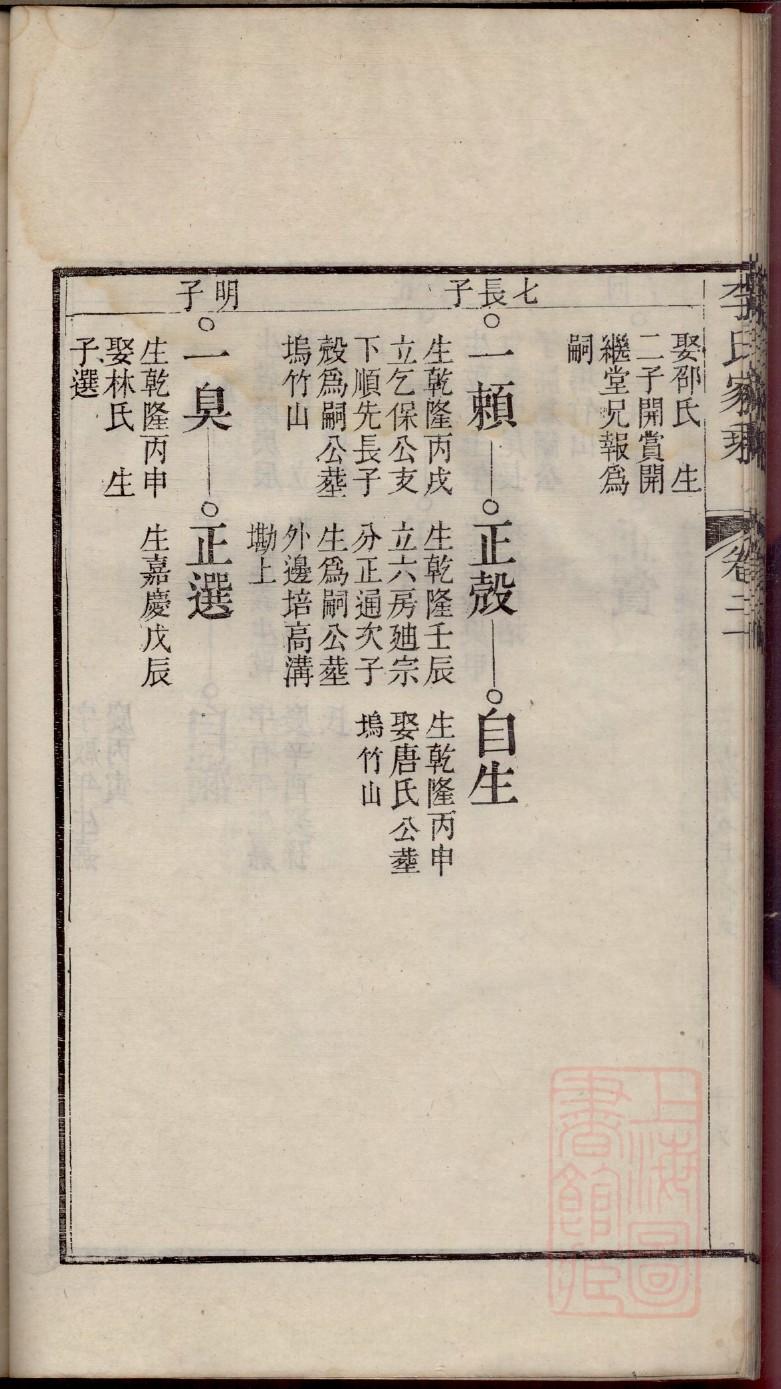 李氏家乘
卷三
娶邵氏　生
二子開賞開
繼堂兄報爲
嗣
七長子
一賴
生乾隆丙戌
立乞保公支
下順先長子
殼爲嗣公塟
塢竹山
正殼
生乾隆壬辰
立六房廸宗
分正通次子
生爲嗣公塟
外邊培高溝
墈上
自生
生乾隆丙申
娶唐氏公塟
塢竹山
明子
一臭
生乾隆丙申
娶林氏　生
子選
正選
生嘉慶戊辰
上海圖
書館藏